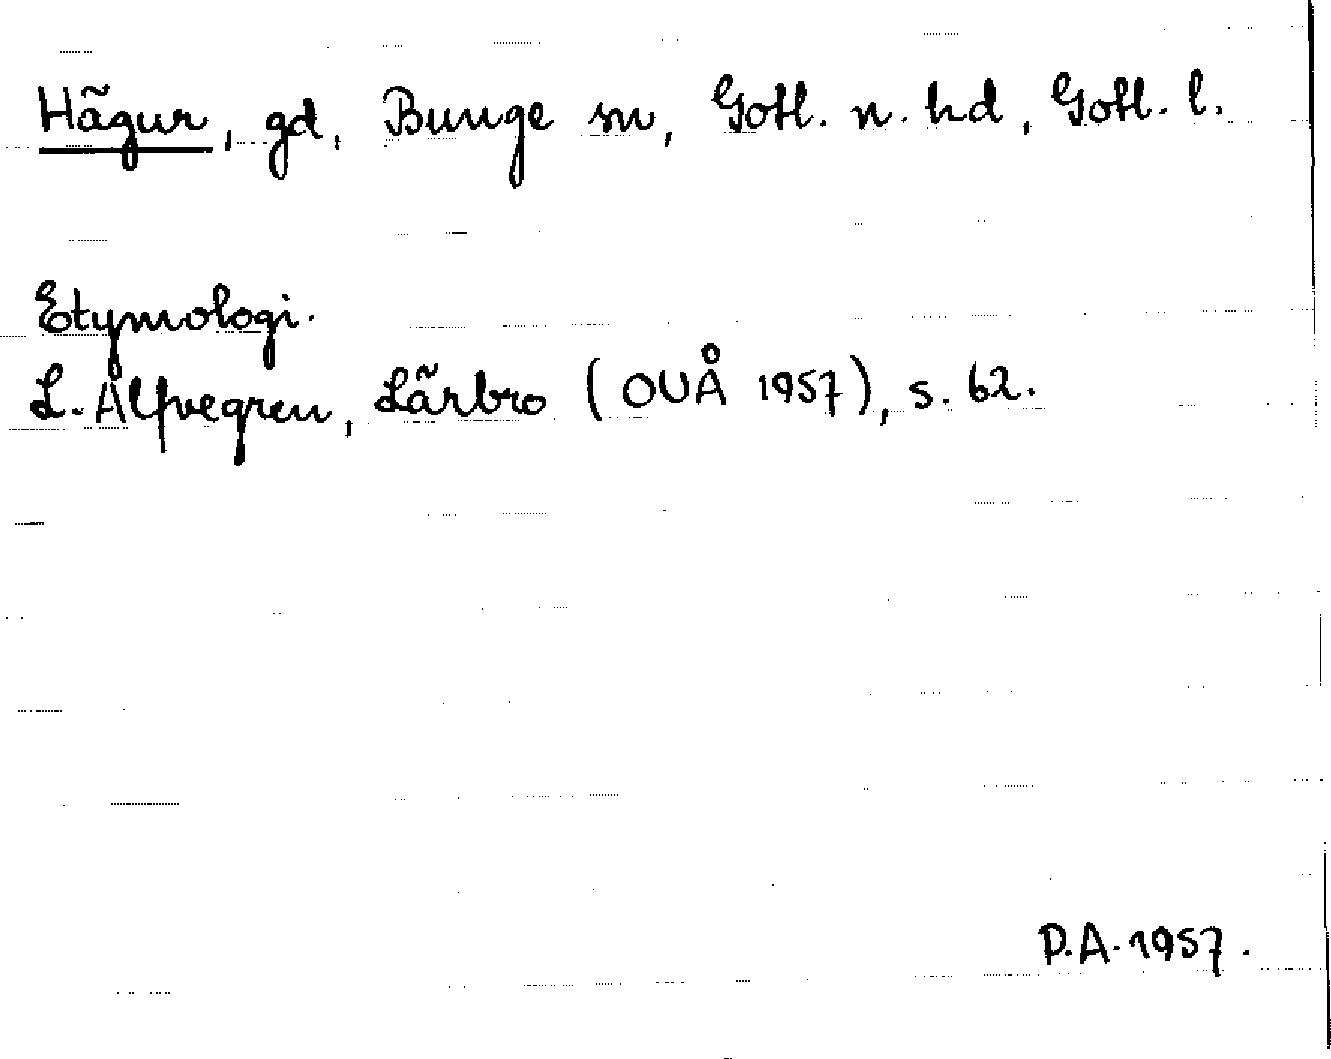 Hägur, gd, Bunge sn, Gotl. n. hd, Gotl. l.
Etymologi.
L. Älfvegren, Lärbro (OUÅ 1957), s. 62.
P.A. 1957.